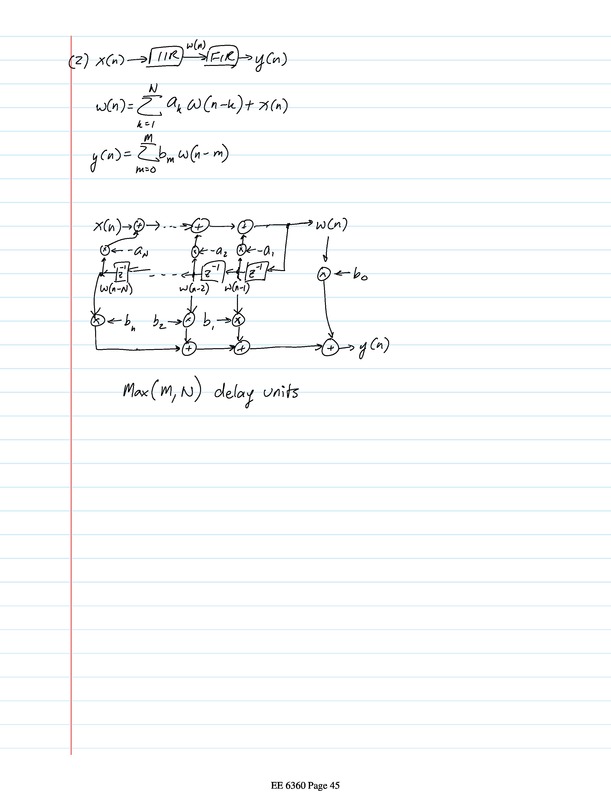 (2) x(n) → IIR w(n) → FIR → y(n)
w(n) = Σ_{k=1}^{N} a_k w(n-k) + x(n)
y(n) = Σ_{m=0}^{M} b_m w(n-m)
x(n) → + → ... → + → + → w(n)
x ← -a_N x ← -a_2 x ← -a_1
z^{-1} ... z^{-1} z^{-1} x ← b_0
w(n-N) w(n-2) w(n-1)
x ← b_n b_2 → x b_1 → x
+ + + → y(n)
Max(M,N) delay units
EE 6360 Page 45